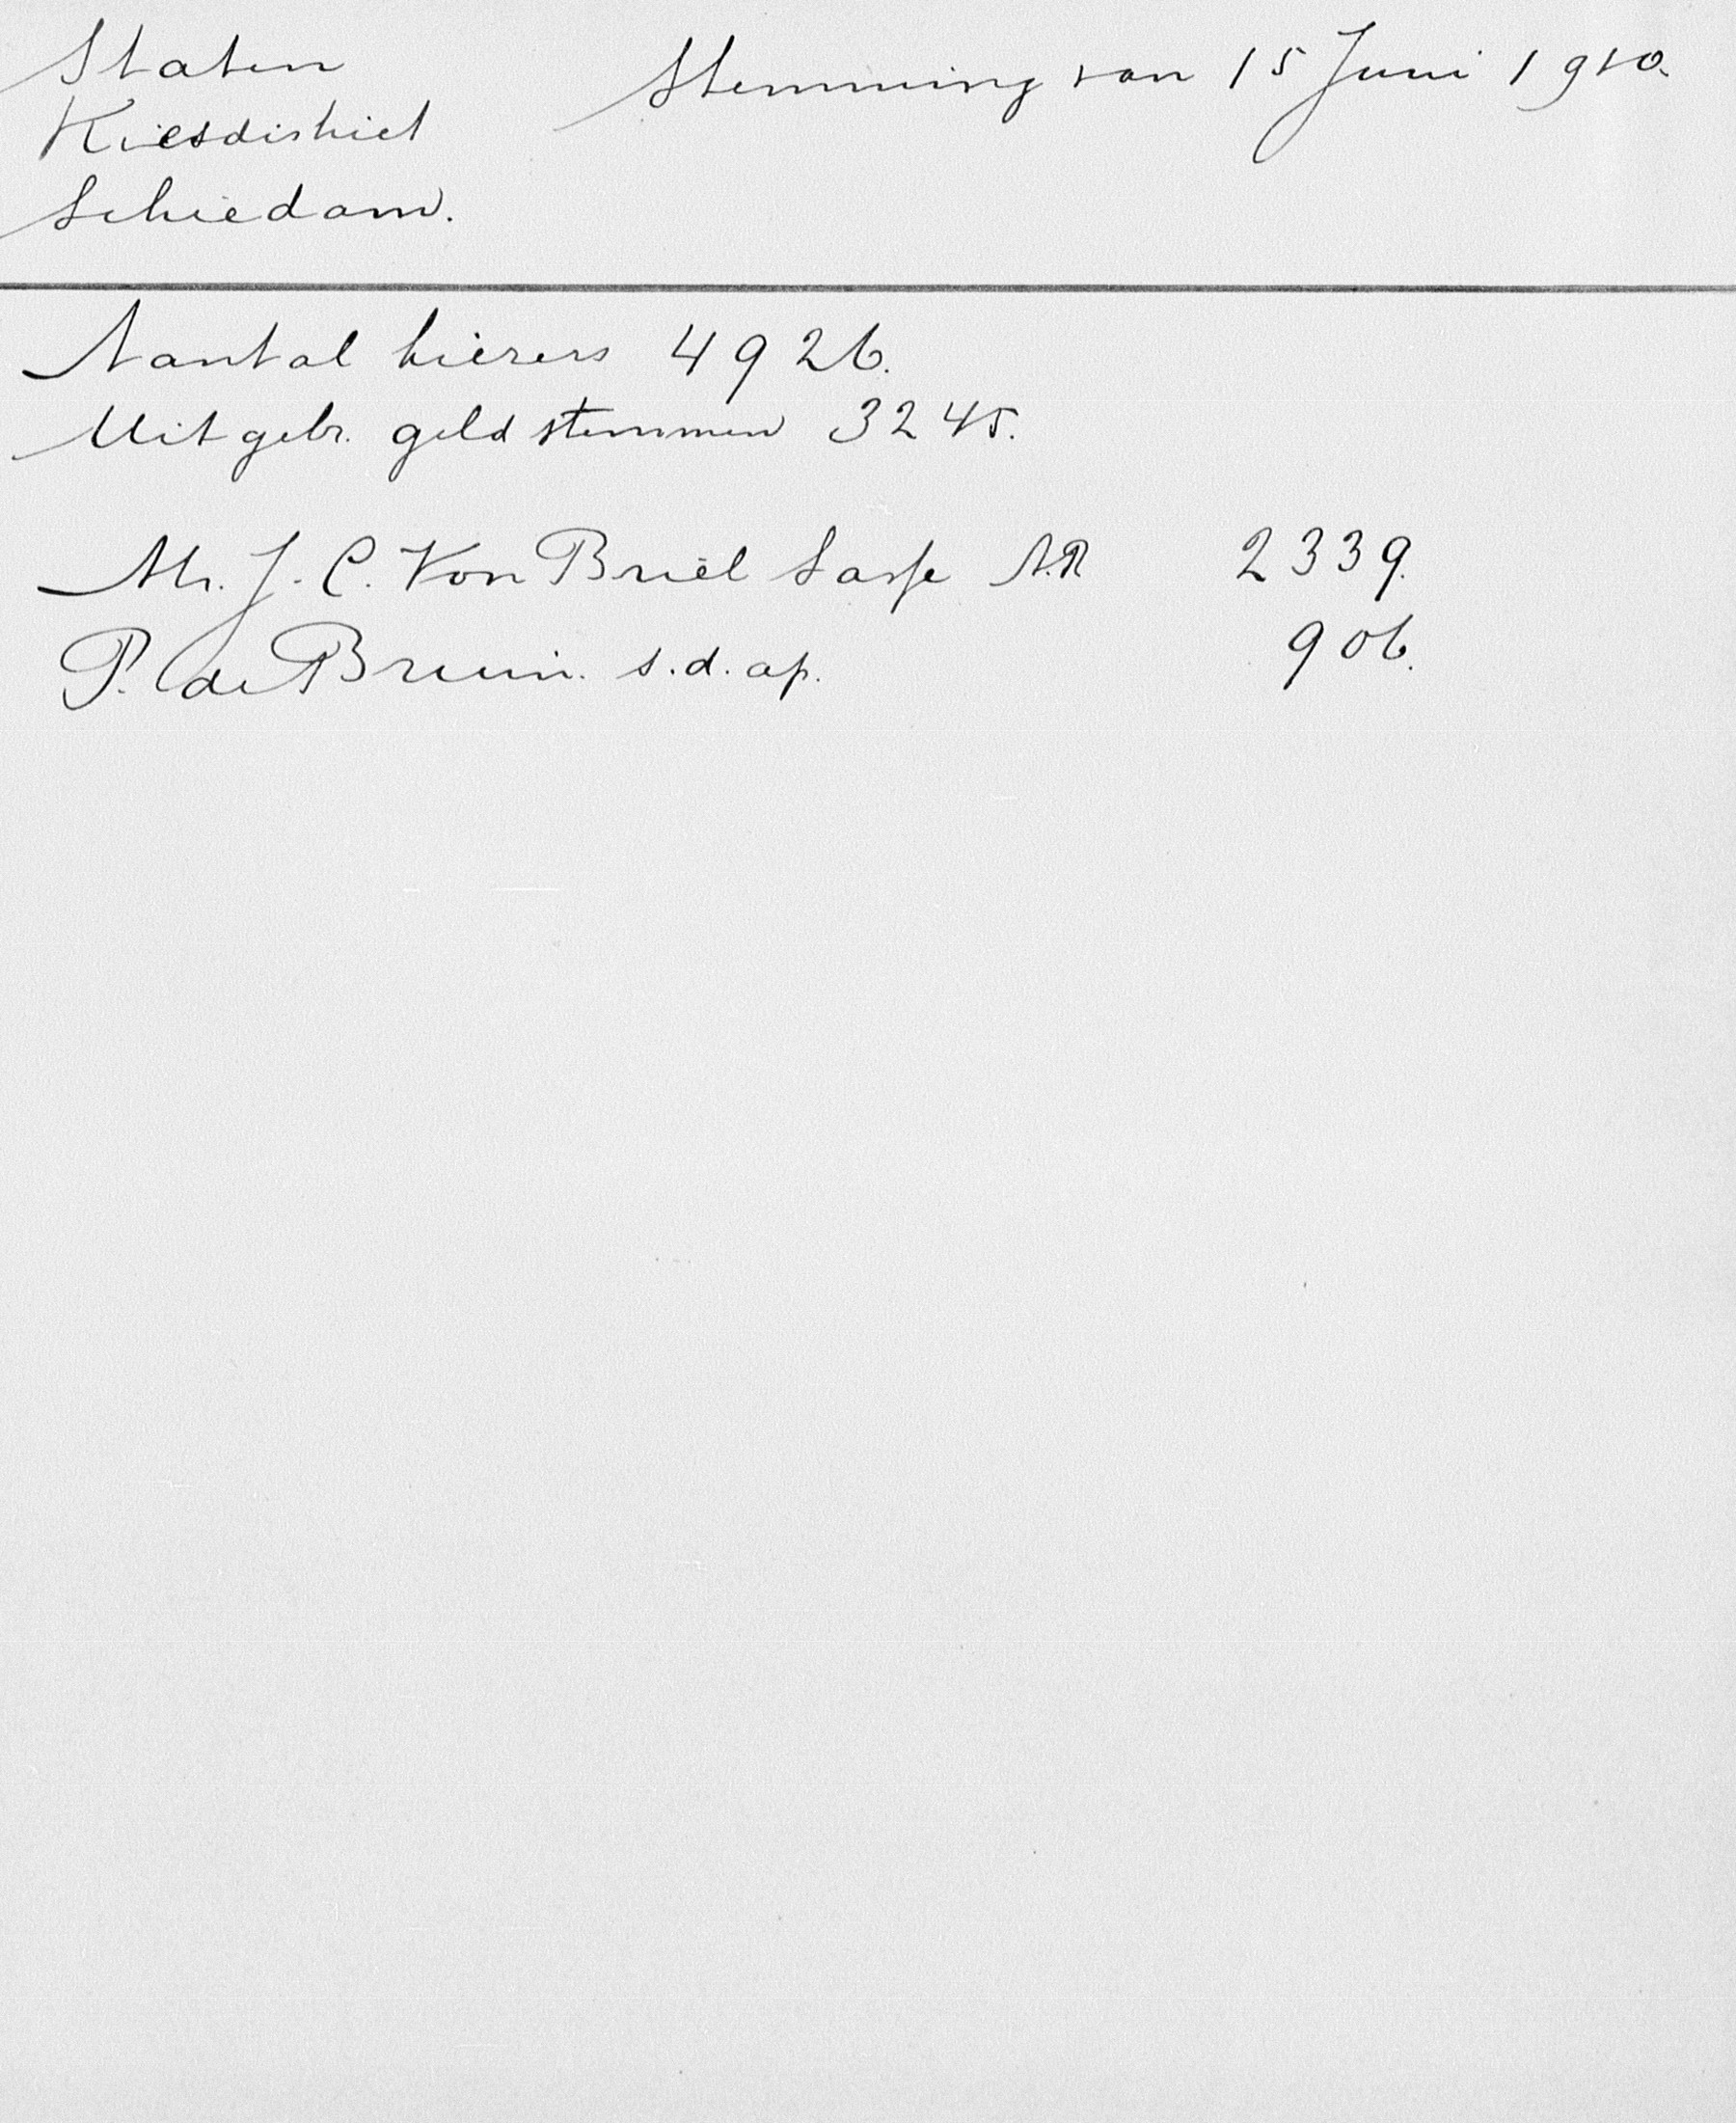 Staten
Kiesdistrict
Schiedam.
Stemming van 15 Juni 1910.
Aantal kiezers 4926.
Uitgebr. geld stemmen 3245.
Mr. J. C. Von Briel Sasse A.R 2339.
P. de Bruin. s.d.ap. 906.